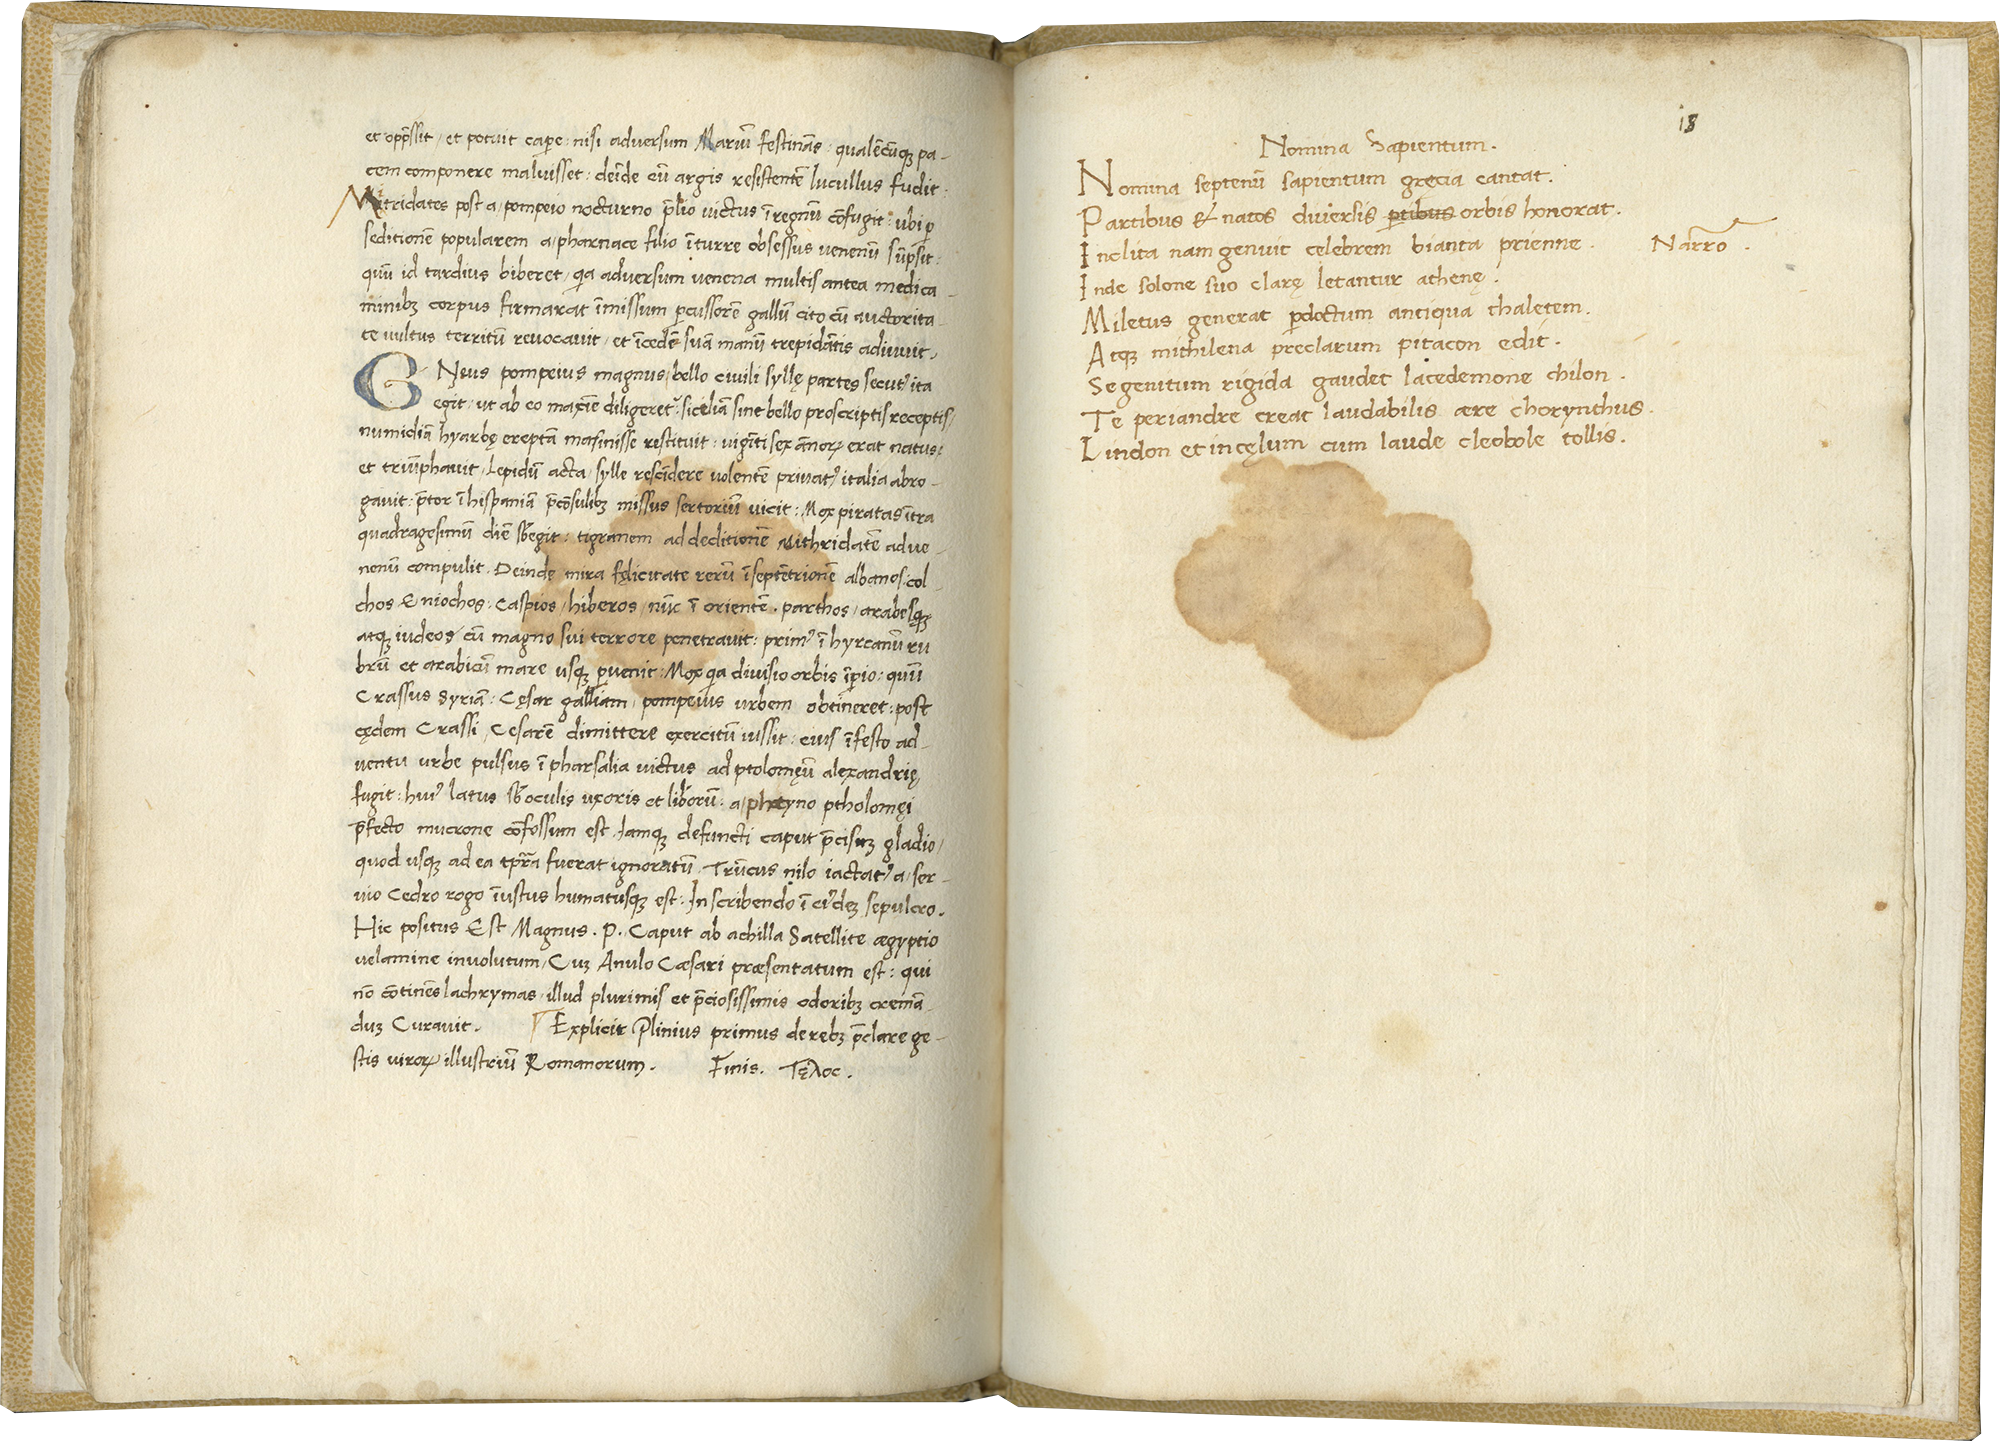 et opp̄ssit / et potuit cap̄e : nisi adversum Mariū festinās : qualēcūqꝫ pa-
cem componere maluisset : deīde cū argis resistentē lucullus fudit :
Mitridates post a / pompeio nocturno p̄lio victus ī regnū cōfugit : ubi ꝑ
seditionē popularem a / pharnace filio ī turre obsessus venenū sūpsit :
quū id tardius biberet / qa adversum venena multis antea medica-
minibꝫ corpus firmarat īmissum ꝑcussorē gallū cito cū auctorita-
te vultus territū revocavit / et īcedē suā manū trepidātis adiuvit /
GNeus pompeius magnus / bello civili syllę partes secut' ita
egit / ut ab eo maxīe diligeret' : siciliā sine bello proscriptis receptis /
numidiā hyarbę ereptā masinisse restituit : vigīti sex ānoꝝ erat natus :
et triūphavit / Lepidū acta / sylle rescīdere volentē privat' italia abro-
gavit : p̄tor ī hispaniā p̄cōsulibꝫ missus sertoriū vicit : Mox piratas ītra
quadragesimū diē sb̄egit : tigranem ad deditionē Mithridatē ad ve-
nenū compulit . Deinde mira fęlicitate rerū ī septētrionē albanos . col-
chos & niochos . Caspios / hiberos / nūc ī orientē . parthos / arabesqꝫ
atqꝫ iudeos cū magno sui terrore penetravit : prim' ī hyrcanū ru
brū et arabicū mare usqꝫ ꝑvenit : Mox qa diviso orbis īꝑio : quū
Crassus Syriā : Cęsar galliam / pompeius urbem obtīneret : post
cędem Crassi / Cesarē dimittere exercitū iussit : cuis īfesto ad-
ventu urbe pulsus ī pharsalia victus ad ptolomęū alexandrię
fugit : hui' latus sb̄ oculis uxoris et liberorū : a / photyno ptholomęi
p̄fecto mucrone cōfossum est . Iamqꝫ defuncti caput p̄cisuꝫ gladio /
quod usqꝫ ad ea tp̄ra fuerat ignoratū . Trūcus nilo iactat' a / ser-
vio Cedro rogo īustus humatusqꝫ est : Inscribendo ī ci'deꝫ sepulcro .
Hic positus Est Magnus . P . Caput ab achilla Satellite ægyptio
velamine involutum / Cuꝫ Anulo Cæsari præsentatum est : qui
nō cōtinēs lachrymas / illud plurimis et p̄ciosissimis odoribꝫ cremā-
duꝫ Curavit . Explicit Plinius primus de rebꝫ p̄clare ge-
stis viroꝝ illustriū Romanorum . Finis . Τęλος .
18
Nomina Sapientum .
Nomina septenū sapientum grecia cantat .
Partibus & natos diversis ꝑtibus orbis honorat .
Inclita nam genuit celebrem bianta prienne . Narro .
Inde solone suo clarę letantur athenę .
Miletus generat ꝑdoctum antiqua thaletem .
Atqꝫ mithilena preclarum pitacon edit .
Se genitum rigida gaudet lacedemone chilon .
Te periandre creat laudabilis ære chorynthus .
Lindon et in cęlum cum laude cleobole tollis .